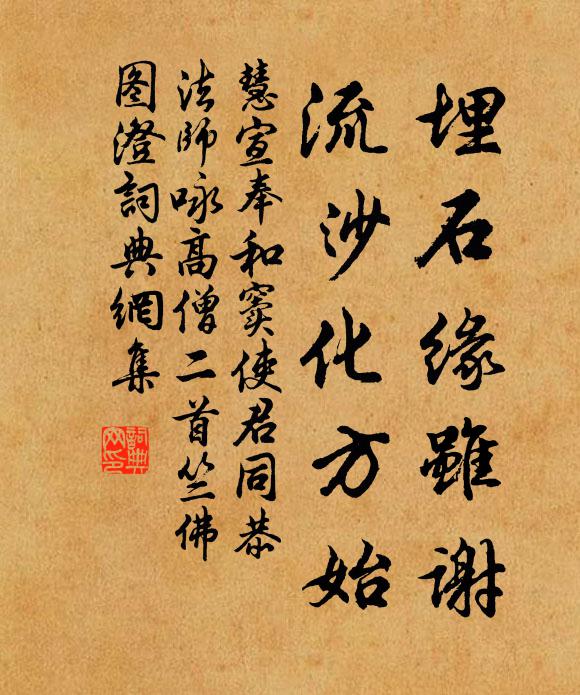 埋石缘雖谢
流沙化方始
慧宣奉和窦使君同恭
法師咏高僧二首竺佛
图澄詞典網集
詞典网印